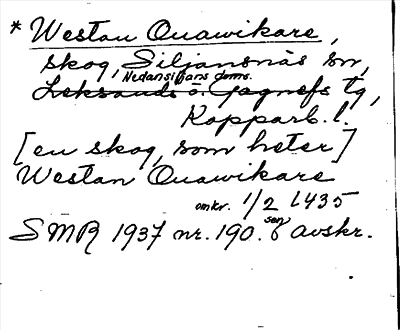 * Westan Quawikare,
skog, Siljansnäs sn,
Nedansiljans doms.
Leksands o. Gagnefs tg,
Kopparb. l.
[en skog, som heter]
Westan Quawikare
omkr. 1/2 1435
SMR 1937 nr. 190. sen avskr.